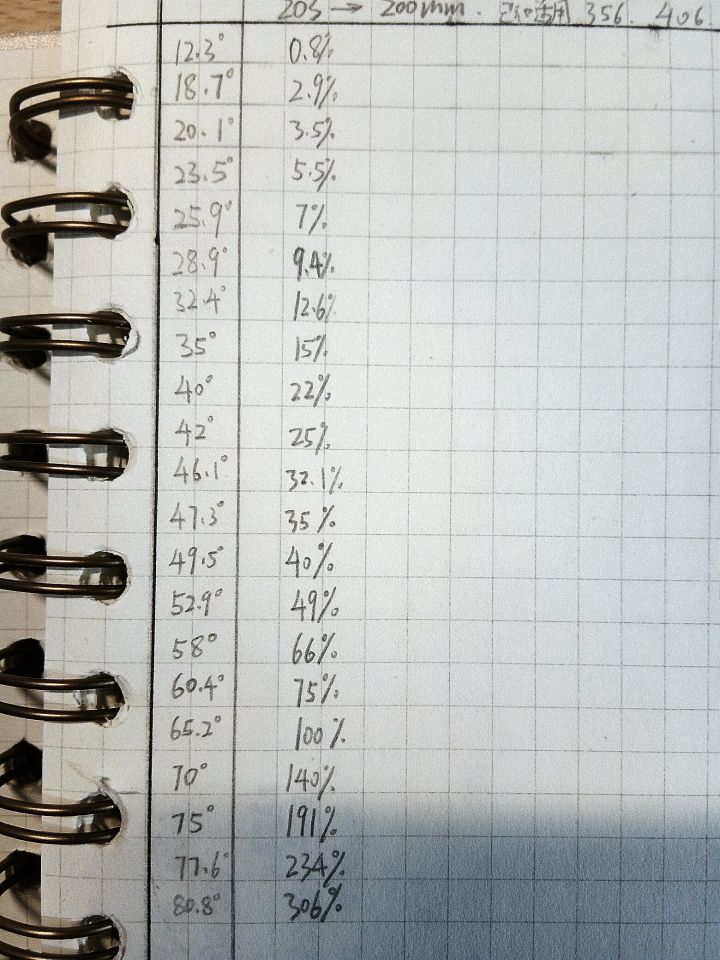 205 → 200mm. 356. 406.
12.3° 0.8%
18.7° 2.9%
20.1° 3.5%
23.5° 5.5%
25.9° 7%
28.9° 9.4%
32.4° 12.6%
35° 15%
40° 22%
42° 25%
46.1° 32.1%
47.3° 35%
49.5° 40%
52.9° 49%
58° 66%
60.4° 75%
65.2° 100%
70° 140%
75° 191%
77.6° 234%
80.8° 306%